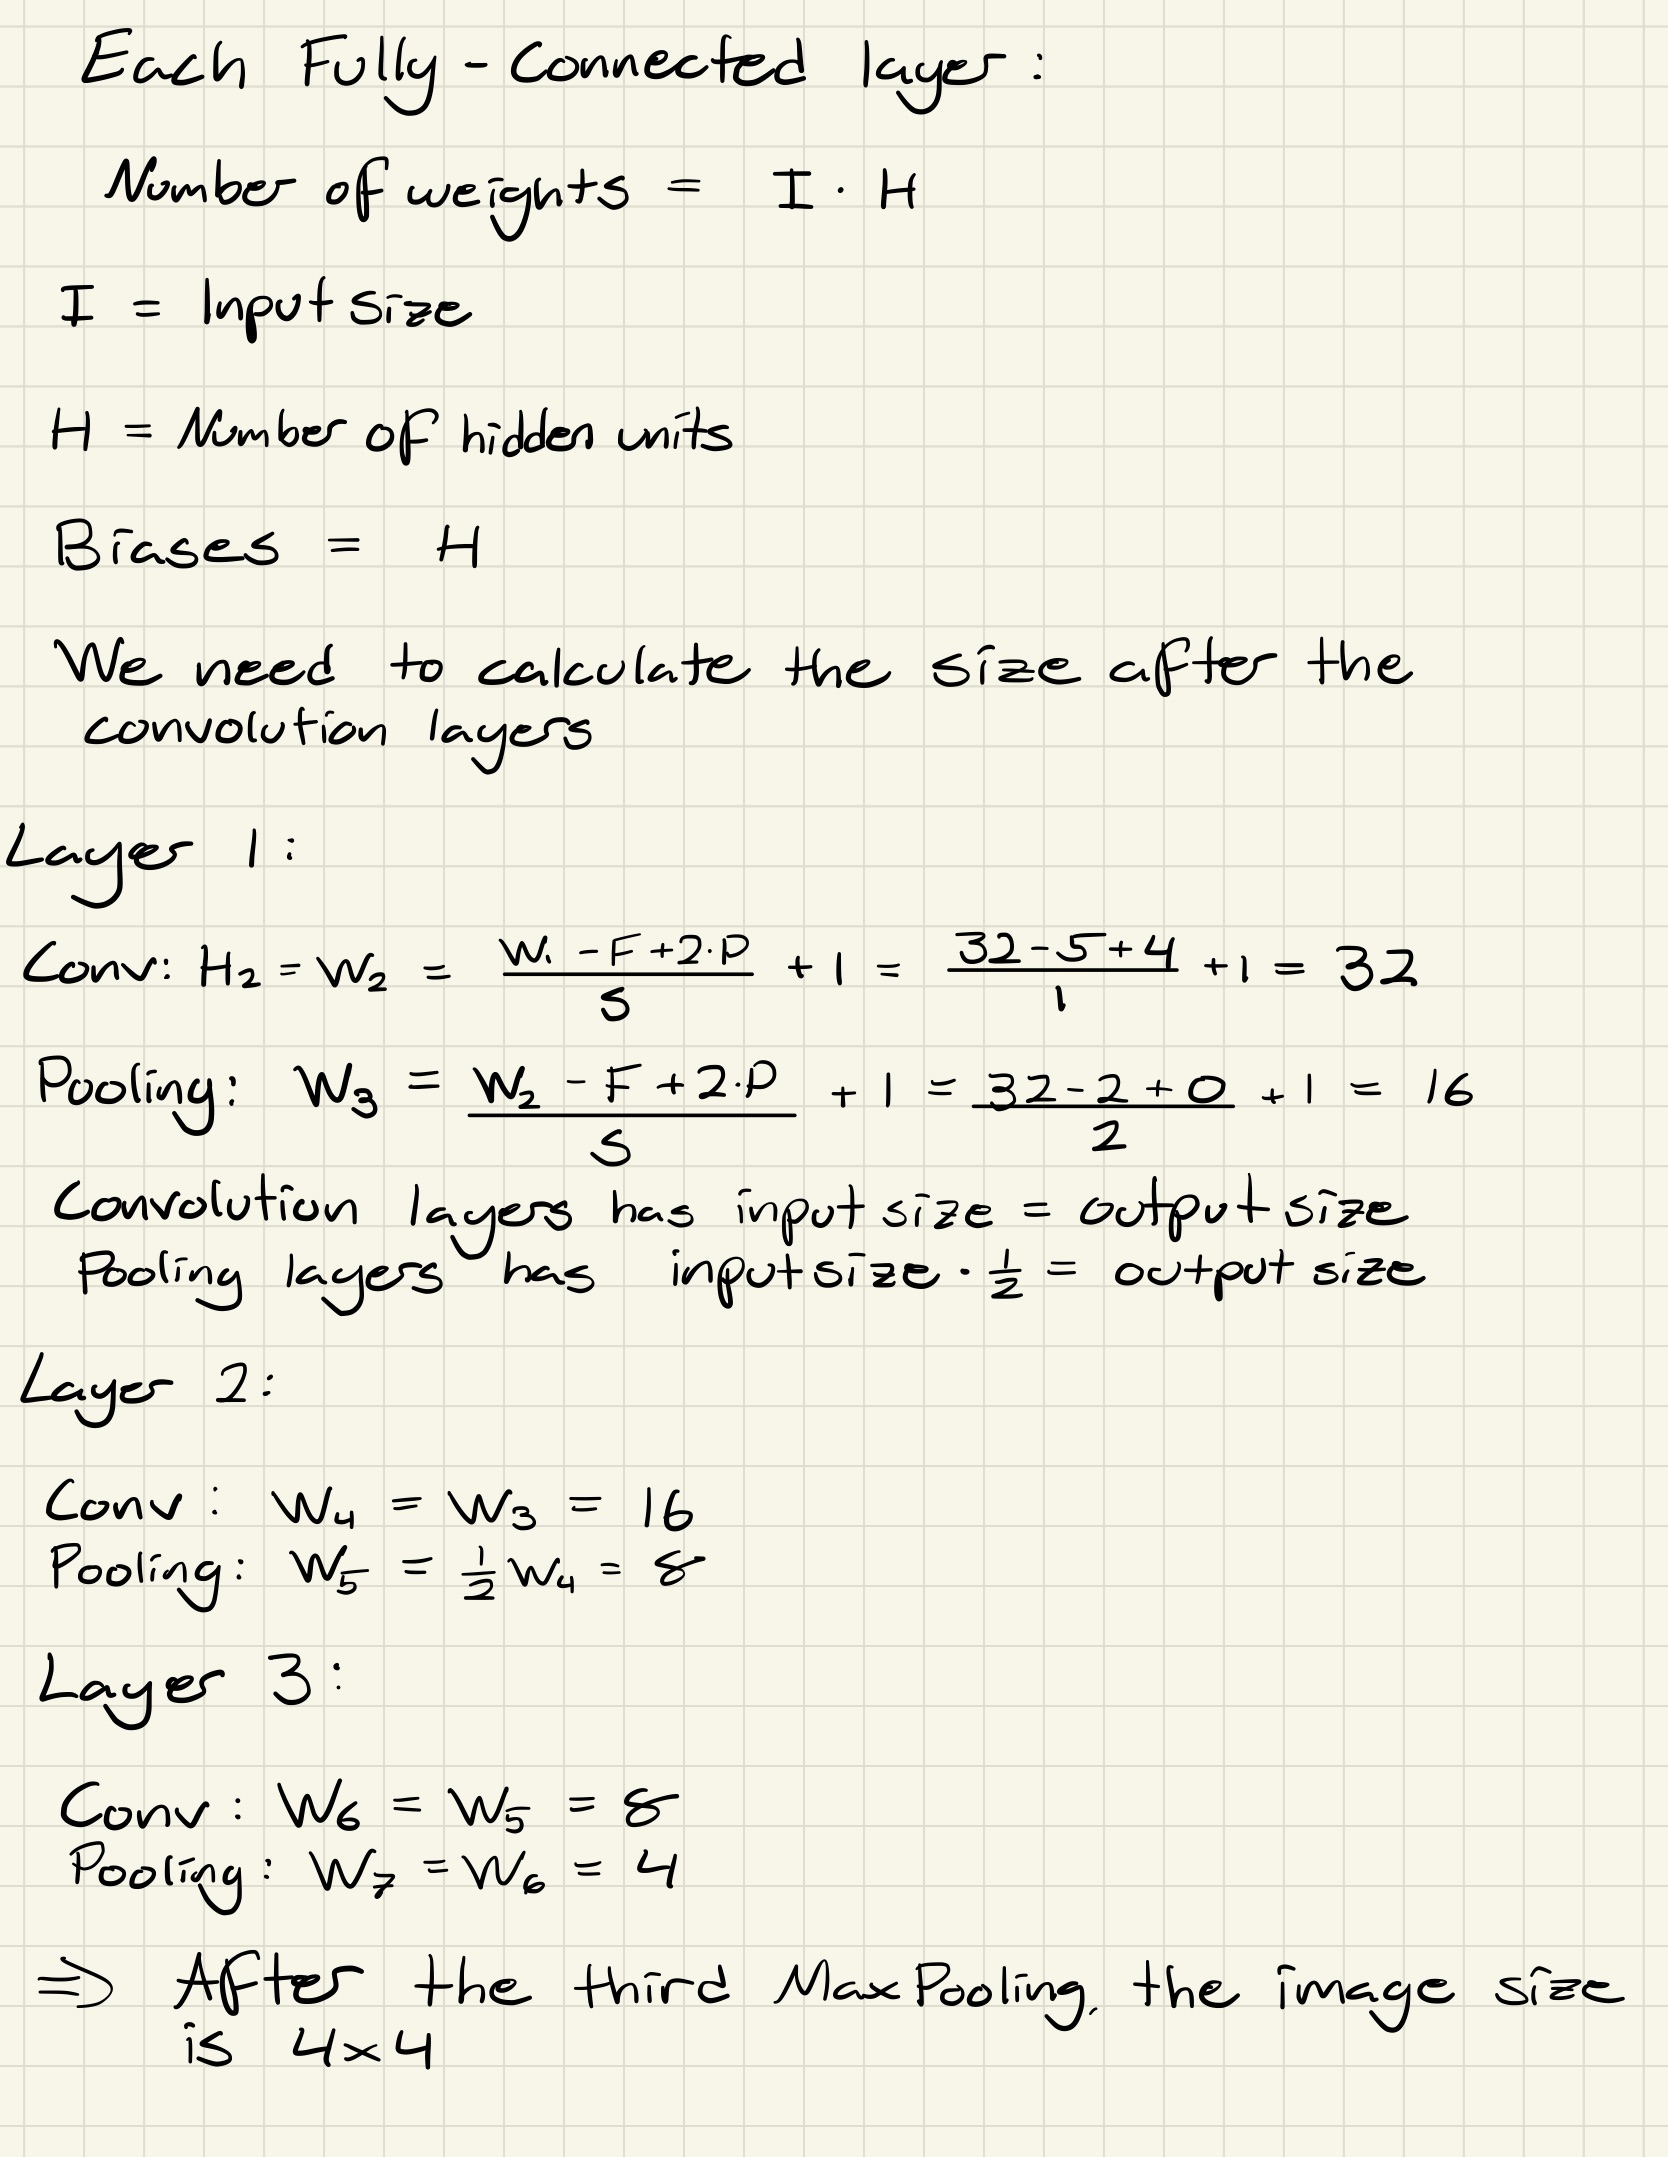 Each Fully-Connected layer:
Number of weights = I · H
I = Input size
H = Number of hidden units
Biases = H
We need to calculate the size after the
convolution layers
Layer 1:
Conv: H₂ = W₂ = (W₁ - F + 2·P)/S + 1 = (32 - 5 + 4)/1 + 1 = 32
Pooling: W₃ = (W₂ - F + 2·P)/S + 1 = (32 - 2 + 0)/2 + 1 = 16
Convolution layers has input size = output size
Pooling layers has input size · 1/2 = output size
Layer 2:
Conv: W₄ = W₃ = 16
Pooling: W₅ = 1/2 W₄ = 8
Layer 3:
Conv: W₆ = W₅ = 8
Pooling: W₇ = W₆ = 4
⇒ After the third MaxPooling, the image size
is 4x4